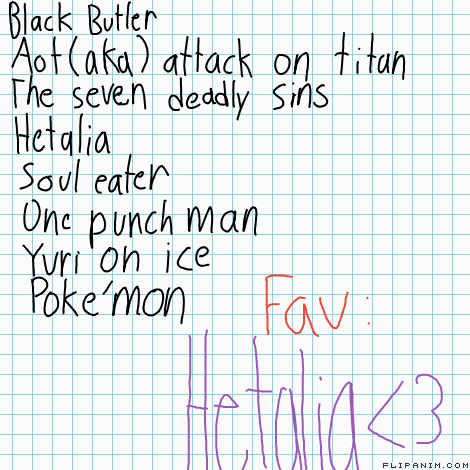 Black Butler
Aot(aka) attack on titan
The seven deadly sins
Hetalia
Soul eater
One punch man
Yuri on ice
Poke'mon
Fav:
Hetalia<3
FLIPANIM.COM